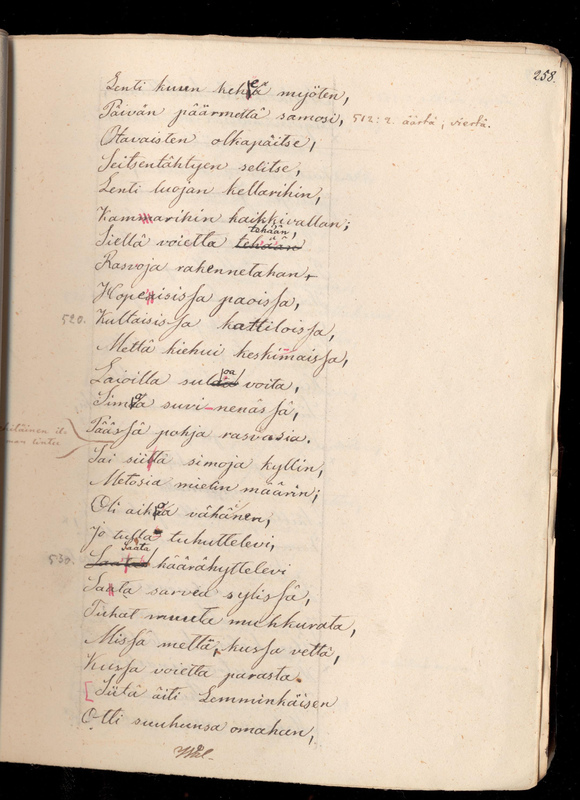 258.
Lenti kuun keheä myöten,
Päivän päärmettä samosi, 512: 2. äärtä, viertä.
Otavaisten olkapäitse,
Seitsentähtyen selitse,
Lenti luojan kellarihin,
Kammarihin kaikkivallan;
tehään,
Siellä voietta tehään
Rasvoja rakennetahan
Hopeisissa paoissa,
520. Kultaisissa kattiloissa,
Mettä kiehui keskimaissa,
oa
Laioilla sulaa voita,
Simoa suvi-nenässä,
Päässä pohja rasvasia.
Sai siitä simoja kyllin,
Metosia mielin määrin;
Oli aikoa vähänen,
Jo tulla tuhuttelevi,
Saata
530. Saatat käärähyttelevi
Saata sarvea sylissä,
Tuhat muuta muhkurata,
Missä mettä, kussa vettä,
Kussa voietta parasta.
[Siitä äiti Lemminkäisen
Otti suuhunsa omahan,